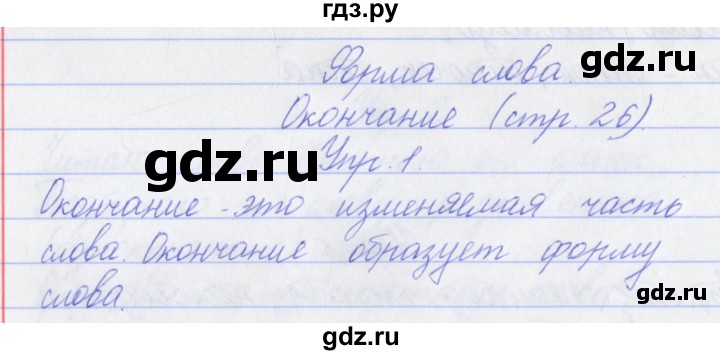 гдз.ру
Форма слова.
gdz.ru
Окончание (стр. 26).
gdz.ru
Упр. 1.
Окончание - это изменяемая часть
слова. Окончание образует форму
gdz.ru
слова.
gdz.ru
gdz.ru